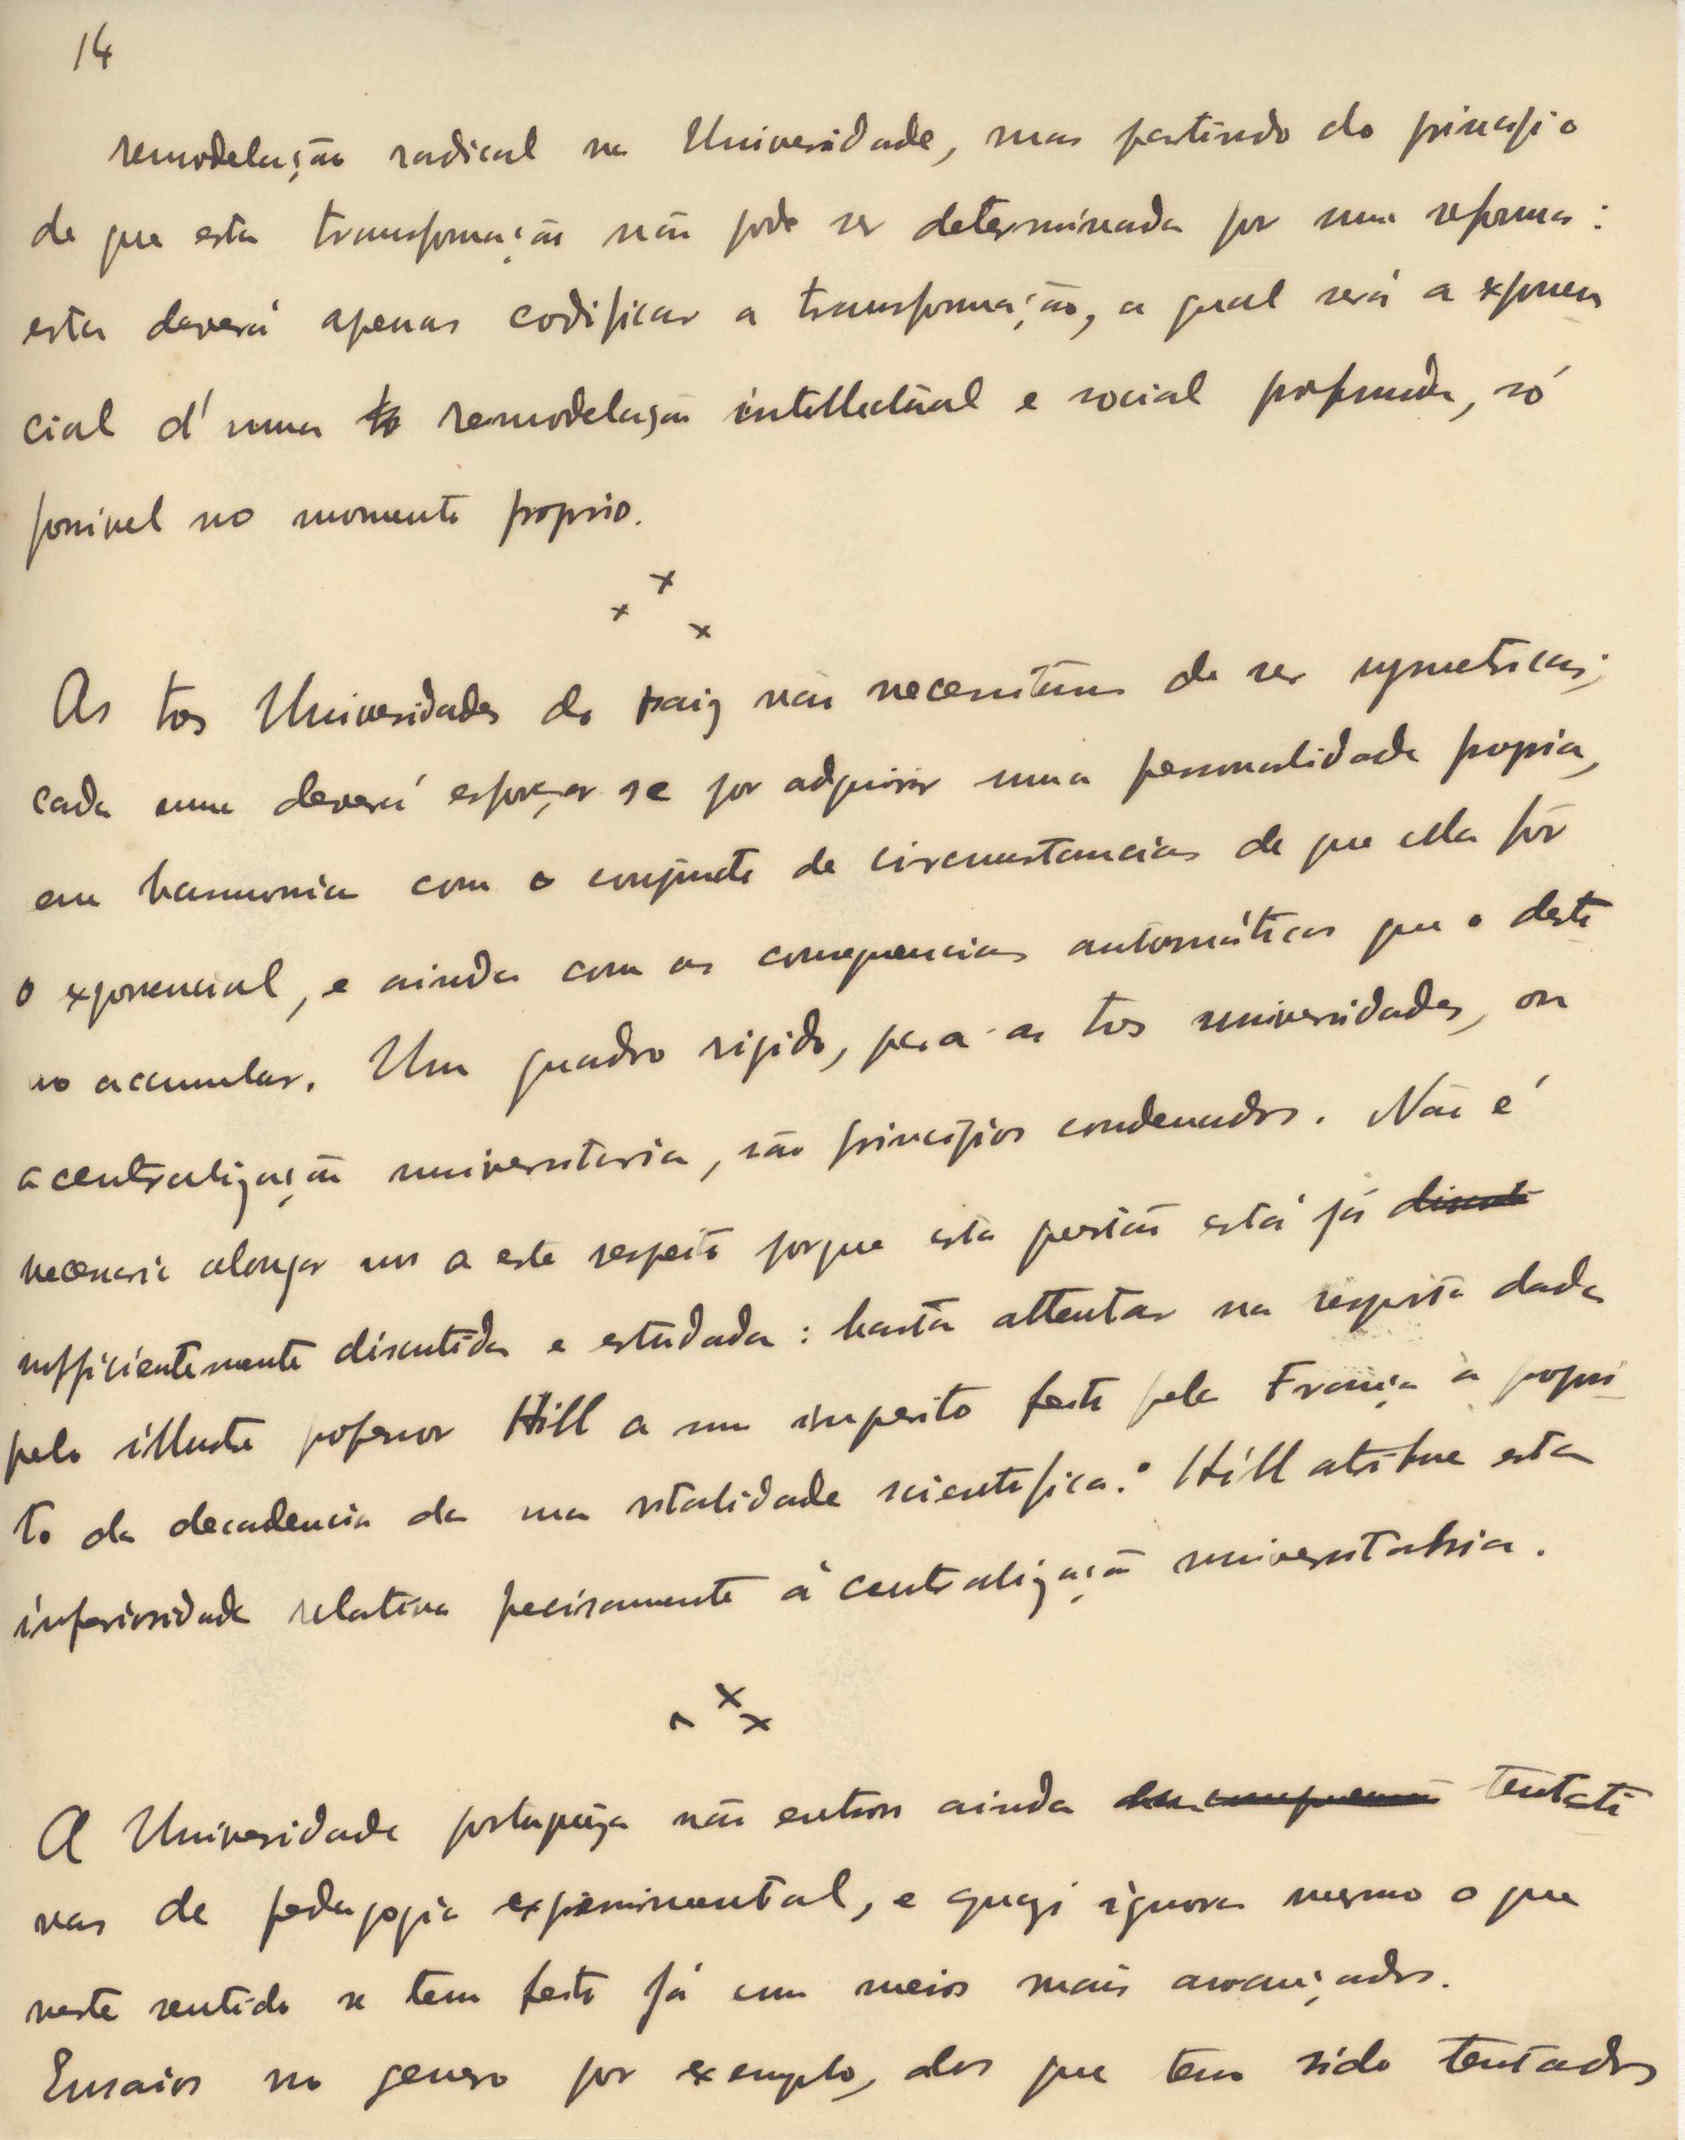 14
remodelação radical na Universidade, mas partindo do principio
de que esta transformação não pode ser determinada por uma reforma:
esta deverá apenas codificar a transformação, a qual será a exponen
cial d'uma remodelação intellectual e social profunda, só
possivel no momento proprio.
x x x
As tres Universidades do paiz não necessitam de ser symetricas;
cada uma deverá esforçar se por adquirir uma personalidade propria,
em harmonia com o conjuncto de circumstancias de que ella fôr
o exponencial, e ainda com as consequencias automáticas que o desti
no accumular. Um quadro rigido, para as tres universidades, ou
a centralização universitaria, são principios condenados. Não é
necessario alongar nos a este respeito porque esta questão está já
sufficientemente discutida e estudada: basta attentar na resposta dada
pelo illustre professor Hill a um inquerito feito pela França a propósi
to da decadencia da sua vitalidade scientifica: Hill atribue esta
inferioridade relativa precisamente á centralização universitaria.
x x x
A Universidade portugueza não entrou ainda tentati
vas de pedagogia experimental, e quazi ignora mesmo o que
neste sentido se tem feito já em meios mais avançados.
Ensaios no genero por exemplo, dos que tem sido tentados